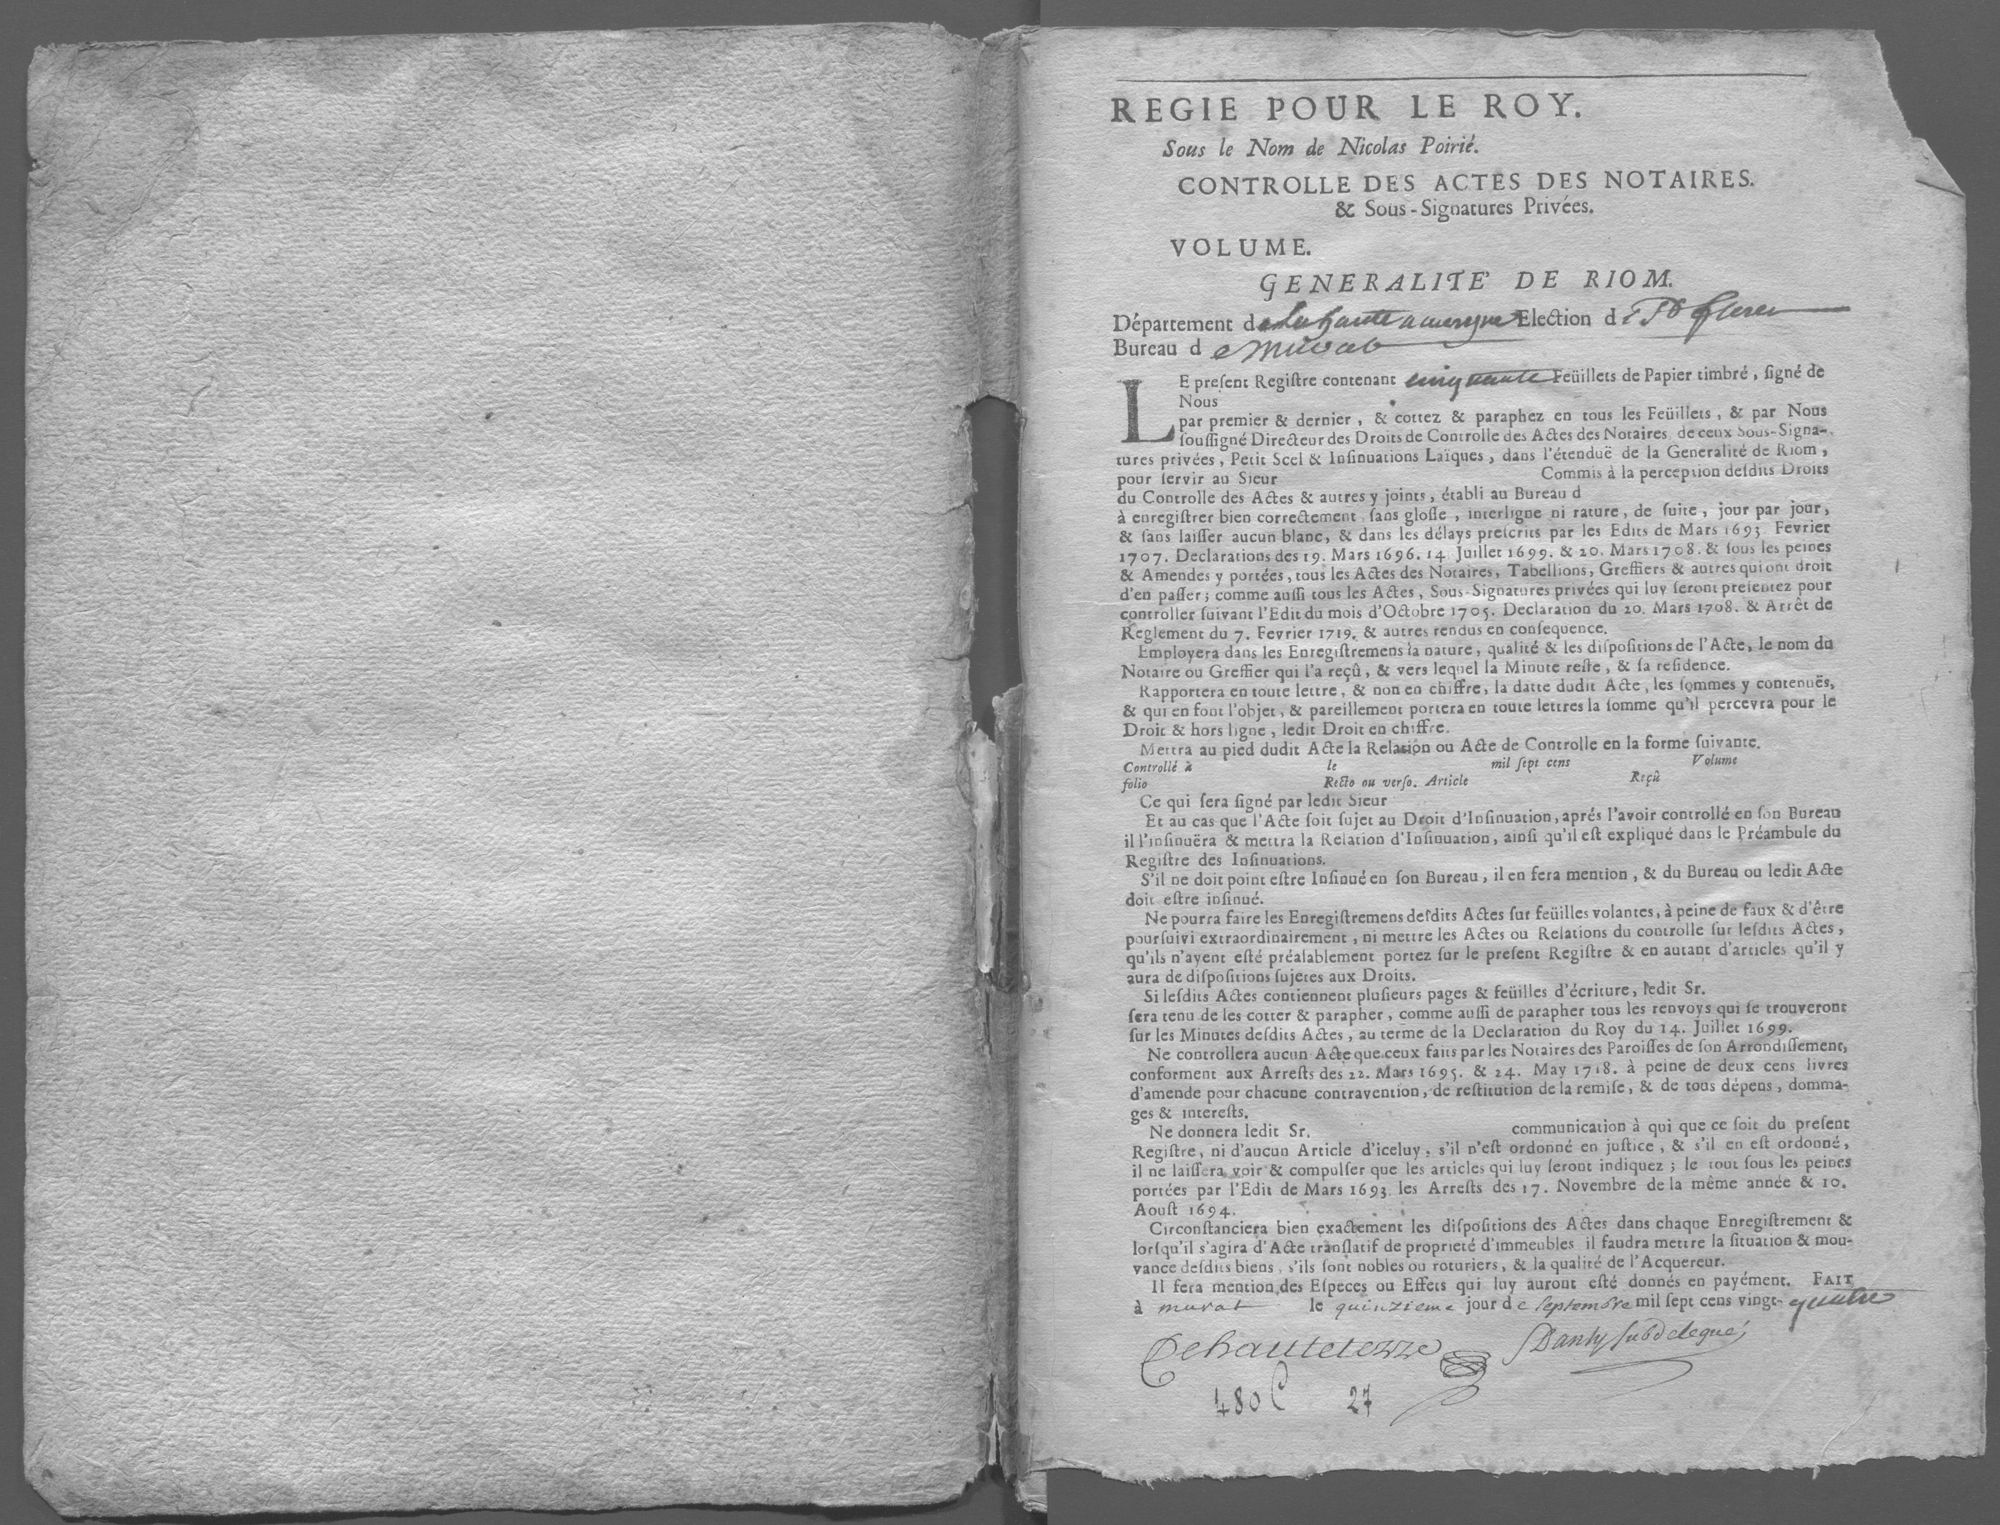 REGIE POUR LE ROY.
Sous le Nom de Nicolas Poirié.
CONTROLLE DES ACTES DES NOTAIRES.
& Sous-Signatures Privées.
VOLUME.
GENERALITE' DE RIOM.
Département de la haute auvergne Election de St flour
Bureau de murat
LE preſent Regiſtre contenant cinquante Feüillets de Papier timbré, ſigné de
Nous
par premier & dernier, & cottez & paraphez en tous les Feüillets, & par Nous
ſouſſigné Directeur des Droits de Controlle des Actes des Notaires de ceux Sous-Signa-
tures privées, Petit Scel & Inſinuations Laïques, dans l'étenduë de la Generalité de Riom,
pour ſervir au Sieur Commis à la perception deſdits Droits
du Controlle des Actes & autres y joints, établi au Bureau d
à enregiſtrer bien correctement ſans gloſſe, interligne ni rature, de ſuite, jour par jour,
& ſans laiſſer aucun blanc, & dans les délays preſcrits par les Edits de Mars 1693. Fevrier
1707. Declarations des 19. Mars 1696. 14. Juillet 1699. & 20. Mars 1708. & ſous les peines
& Amendes y portées, tous les Actes des Notaires, Tabellions, Greffiers & autres qui ont droit
d'en paſſer; comme auſſi tous les Actes, Sous-Signatures privées qui luy ſeront preſentez pour
controller ſuivant l'Edit du mois d'Octobre 1705. Declaration du 20. Mars 1708. & Arrêt de
Reglement du 7. Fevrier 1719. & autres rendus en conſequence.
Employera dans les Enregiſtremens la nature, qualité & les diſpoſitions de l'Acte, le nom du
Notaire ou Greffier qui l'a reçû, & vers lequel la Minute reſte, & ſa reſidence.
Rapportera en toute lettre, & non en chiffre, la datte dudit Acte, les ſommes y contenuës,
& qui en font l'objet, & pareillement portera en toute lettres la ſomme qu'il percevra pour le
Droit & hors ligne, ledit Droit en chiffre.
Mettra au pied dudit Acte la Relation ou Acte de Controlle en la forme ſuivante.
Controllé à le mil ſept cens Volume
folio Recto ou verſo. Article Reçû
Ce qui ſera ſigné par ledit Sieur
Et au cas que l'Acte ſoit ſujet au Droit d'Inſinuation, aprés l'avoir controllé en ſon Bureau
il l'inſinuëra & mettra la Relation d'Inſinuation, ainſi qu'il eſt expliqué dans le Préambule du
Regiſtre des Inſinuations.
S'il ne doit point eſtre Inſinué en ſon Bureau, il en fera mention, & du Bureau ou ledit Acte
doit eſtre inſinué.
Ne pourra faire les Enregiſtremens deſdits Actes ſur feüilles volantes, à peine de faux & d'être
pourſuivi extraordinairement, ni mettre les Actes ou Relations du controlle ſur leſdits Actes,
qu'ils n'ayent eſté préalablement portez ſur le preſent Regiſtre & en autant d'articles qu'il y
aura de diſpoſitions ſujetes aux Droits.
Si leſdits Actes contiennent pluſieurs pages & feüilles d'écriture, ledit Sr.
ſera tenu de les cotter & parapher, comme auſſi de parapher tous les renvoys qui ſe trouveront
ſur les Minutes deſdits Actes, au terme de la Declaration du Roy du 14. Juillet 1699.
Ne controllera aucun Acte que ceux faits par les Notaires des Paroiſſes de ſon Arrondiſſement,
conforment aux Arreſts des 22. Mars 1695. & 24. May 1718. à peine de deux cens livres
d'amende pour chacune contravention, de reſtitution de la remiſe, & de tous dépens, domma-
ges & intereſts.
Ne donnera ledit Sr. communication à qui que ce ſoit du preſent
Regiſtre, ni d'aucun Article d'iceluy, s'il n'eſt ordonné en juſtice, & s'il en eſt ordonné,
il ne laiſſera voir & compulſer que les articles qui luy ſeront indiquez; le tout ſous les peines
portées par l'Edit de Mars 1693. les Arreſts des 17. Novembre de la même année & 10.
Aouſt 1694.
Circonſtanciera bien exactement les diſpoſitions des Actes dans chaque Enregiſtrement &
lorſqu'il s'agira d'Acte tranſlatif de proprieté d'immeubles il faudra mettre la ſituation & mou-
vance deſdits biens, s'ils ſont nobles ou roturiers, & la qualité de l'Acquereur.
Il fera mention des Eſpeces ou Effets qui luy auront eſté donnés en payément. FAIT
à murat le quinzieme jour de septembre mil ſept cens vingt-quatre
Dehauteterre Danty subdelegué
480 C 27